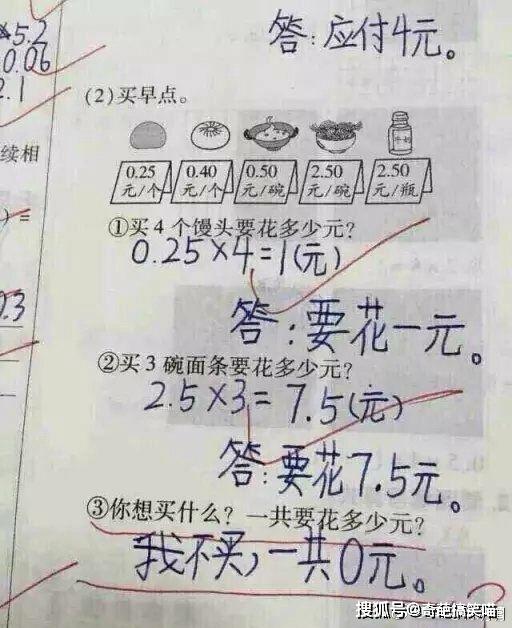 ×5.2
0.06
2.1
答:应付4元。
(2)买早点。
续相
0.25 元/个
0.40 元/个
0.50 元/碗
2.50 元/碗
2.50 元/瓶
①买 4 个馒头要花多少元?
0.25×4=1(元)
答:要花一元。
0.3
②买 3 碗面条要花多少元?
2.5×3=7.5(元)
答:要花7.5元。
③你想买什么?一共要花多少元?
我不买,一共0元。
搜狐号@奇葩搞笑喵